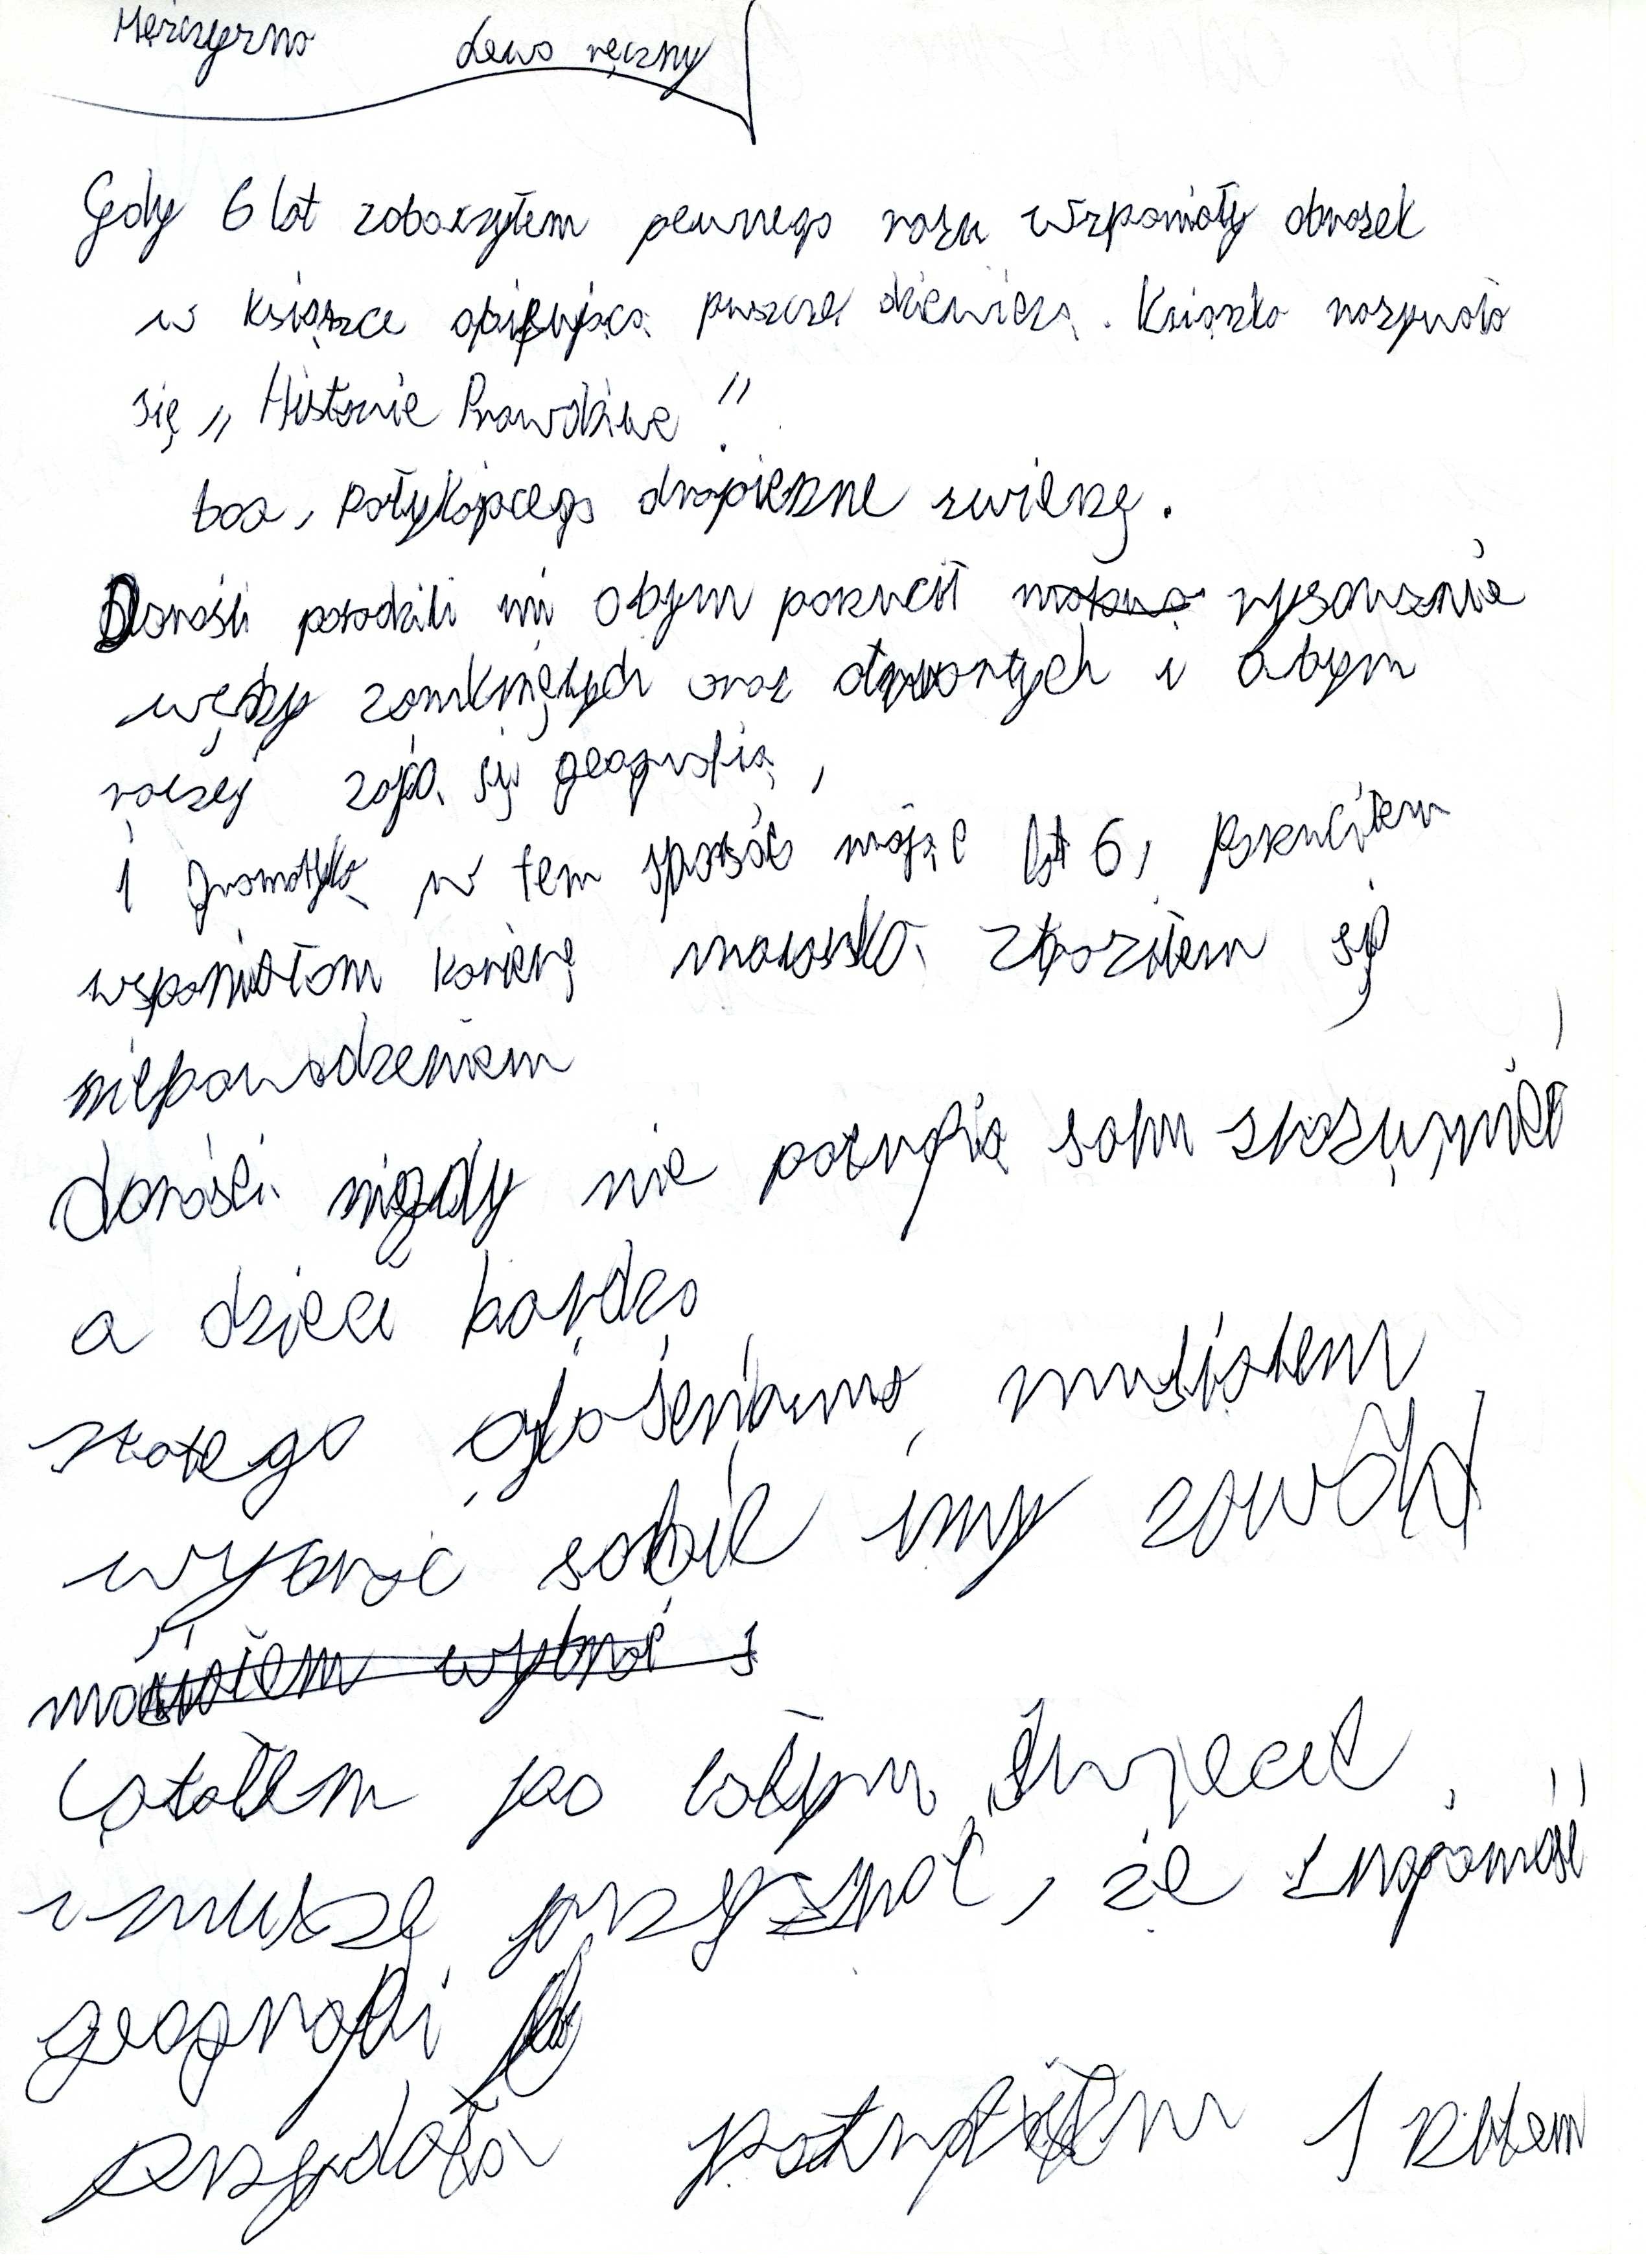 Mężczyzna lewo ręczny
Gdy 6 lat zobaczyłem pewnego razu wspaniały obrazek
w książce opisującą puszczę dziewiczą. Książka nazywała
się „Historie Prawdziwe".
boa, połykającego drapieżne zwierzę.
Dorośli poradzili mi abym porzucił rysowanie
węży zamkniętych oraz otwartych i abym
raczej zajął się geografią,
i gramatyką w tem sposób mając lat 6, porzuciłem
wspaniałom karierę malarską zraziłem się
niepowodzeniem
dorośli nigdy nie potrafią sami zrozumieć
a dzieci bardzo
stałego objaśniania musiałem
wybrać sobie iny zawód
musiałem wybrać s
Latałem po całym świecie
i muszę przyznać, że znajomość
geografi
przydała potrafiłem 1 rzutem